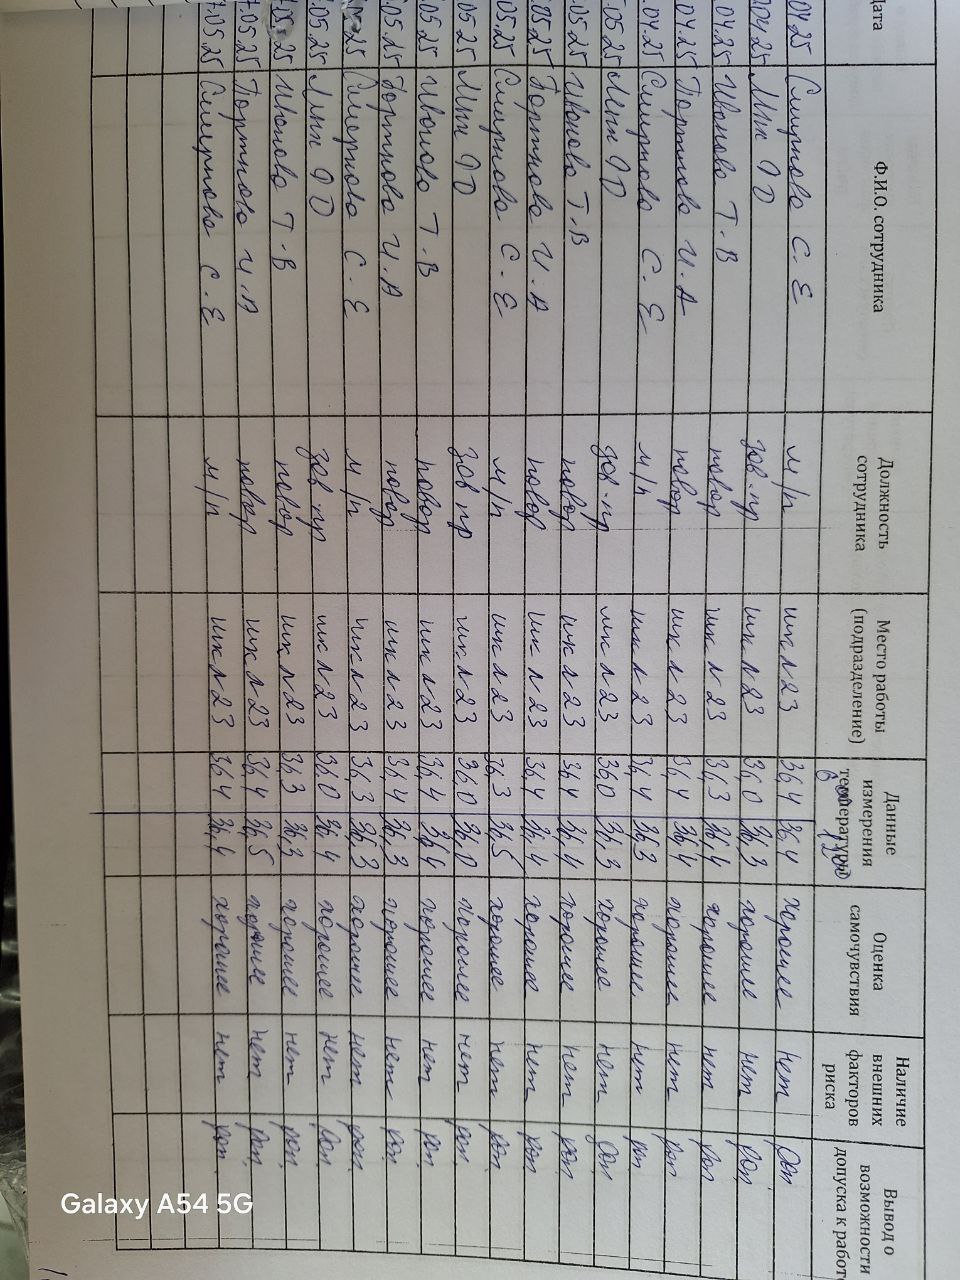 Дата Ф.И.О. сотрудника Должность сотрудника Место работы (подразделение) Данные измерения температуры Оценка самочувствия Наличие внешних факторов риска Вывод о возможности допуска к работ
.04.25 Смирнова С. Е м/п шк л 23 36,4 36,4 хорошее нет доп.
.04.25 зав.пр шк л 23 36,0 36,3 хорошее нет доп.
.04.25 Иванова Т. В повар шк л 23 36,3 36,4 хорошее нет доп
.04.25 Портнова И. А повар шк л 23 36,4 36,4 хорошее нет доп
.04.25 Смирнова С. Е м/п шк л 23 36,4 36,3 хорошее нет доп
.05.25 зав.пр шк л 23 36,0 36,3 хорошее нет доп
.05.25 Иванова Т. В повар шк л 23 36,4 36,4 хорошее нет доп
.05.25 Портнова И. А повар шк л 23 36,4 36,4 хорошее нет доп
.05.25 Смирнова С. Е м/п шк л 23 36,3 36,5 хорошее нет доп.
.05.25 зав пр шк л 23 36,0 36,0 хорошее нет доп.
.05.25 Иванова Т. В повар шк л 23 36,4 36,4 хорошее нет доп.
.05.25 Портнова И. А повар шк л 23 36,4 36,3 хорошее нет доп.
25 Смирнова С. Е м/п шк л 23 36,3 36,3 хорошее нет доп.
.05.25 зав.пр шк л 23 36,0 36,4 хорошее нет доп.
25 Иванова Т. В повар шк л 23 36,3 36,3 хорошее нет доп.
7.05.25 Портнова И. А повар шк л 23 36,4 36,5 хорошее нет доп.
7.05.25 Смирнова С. Е м/п шк л 23 36,4 36,4 хорошее нет доп.
Galaxy A54 5G